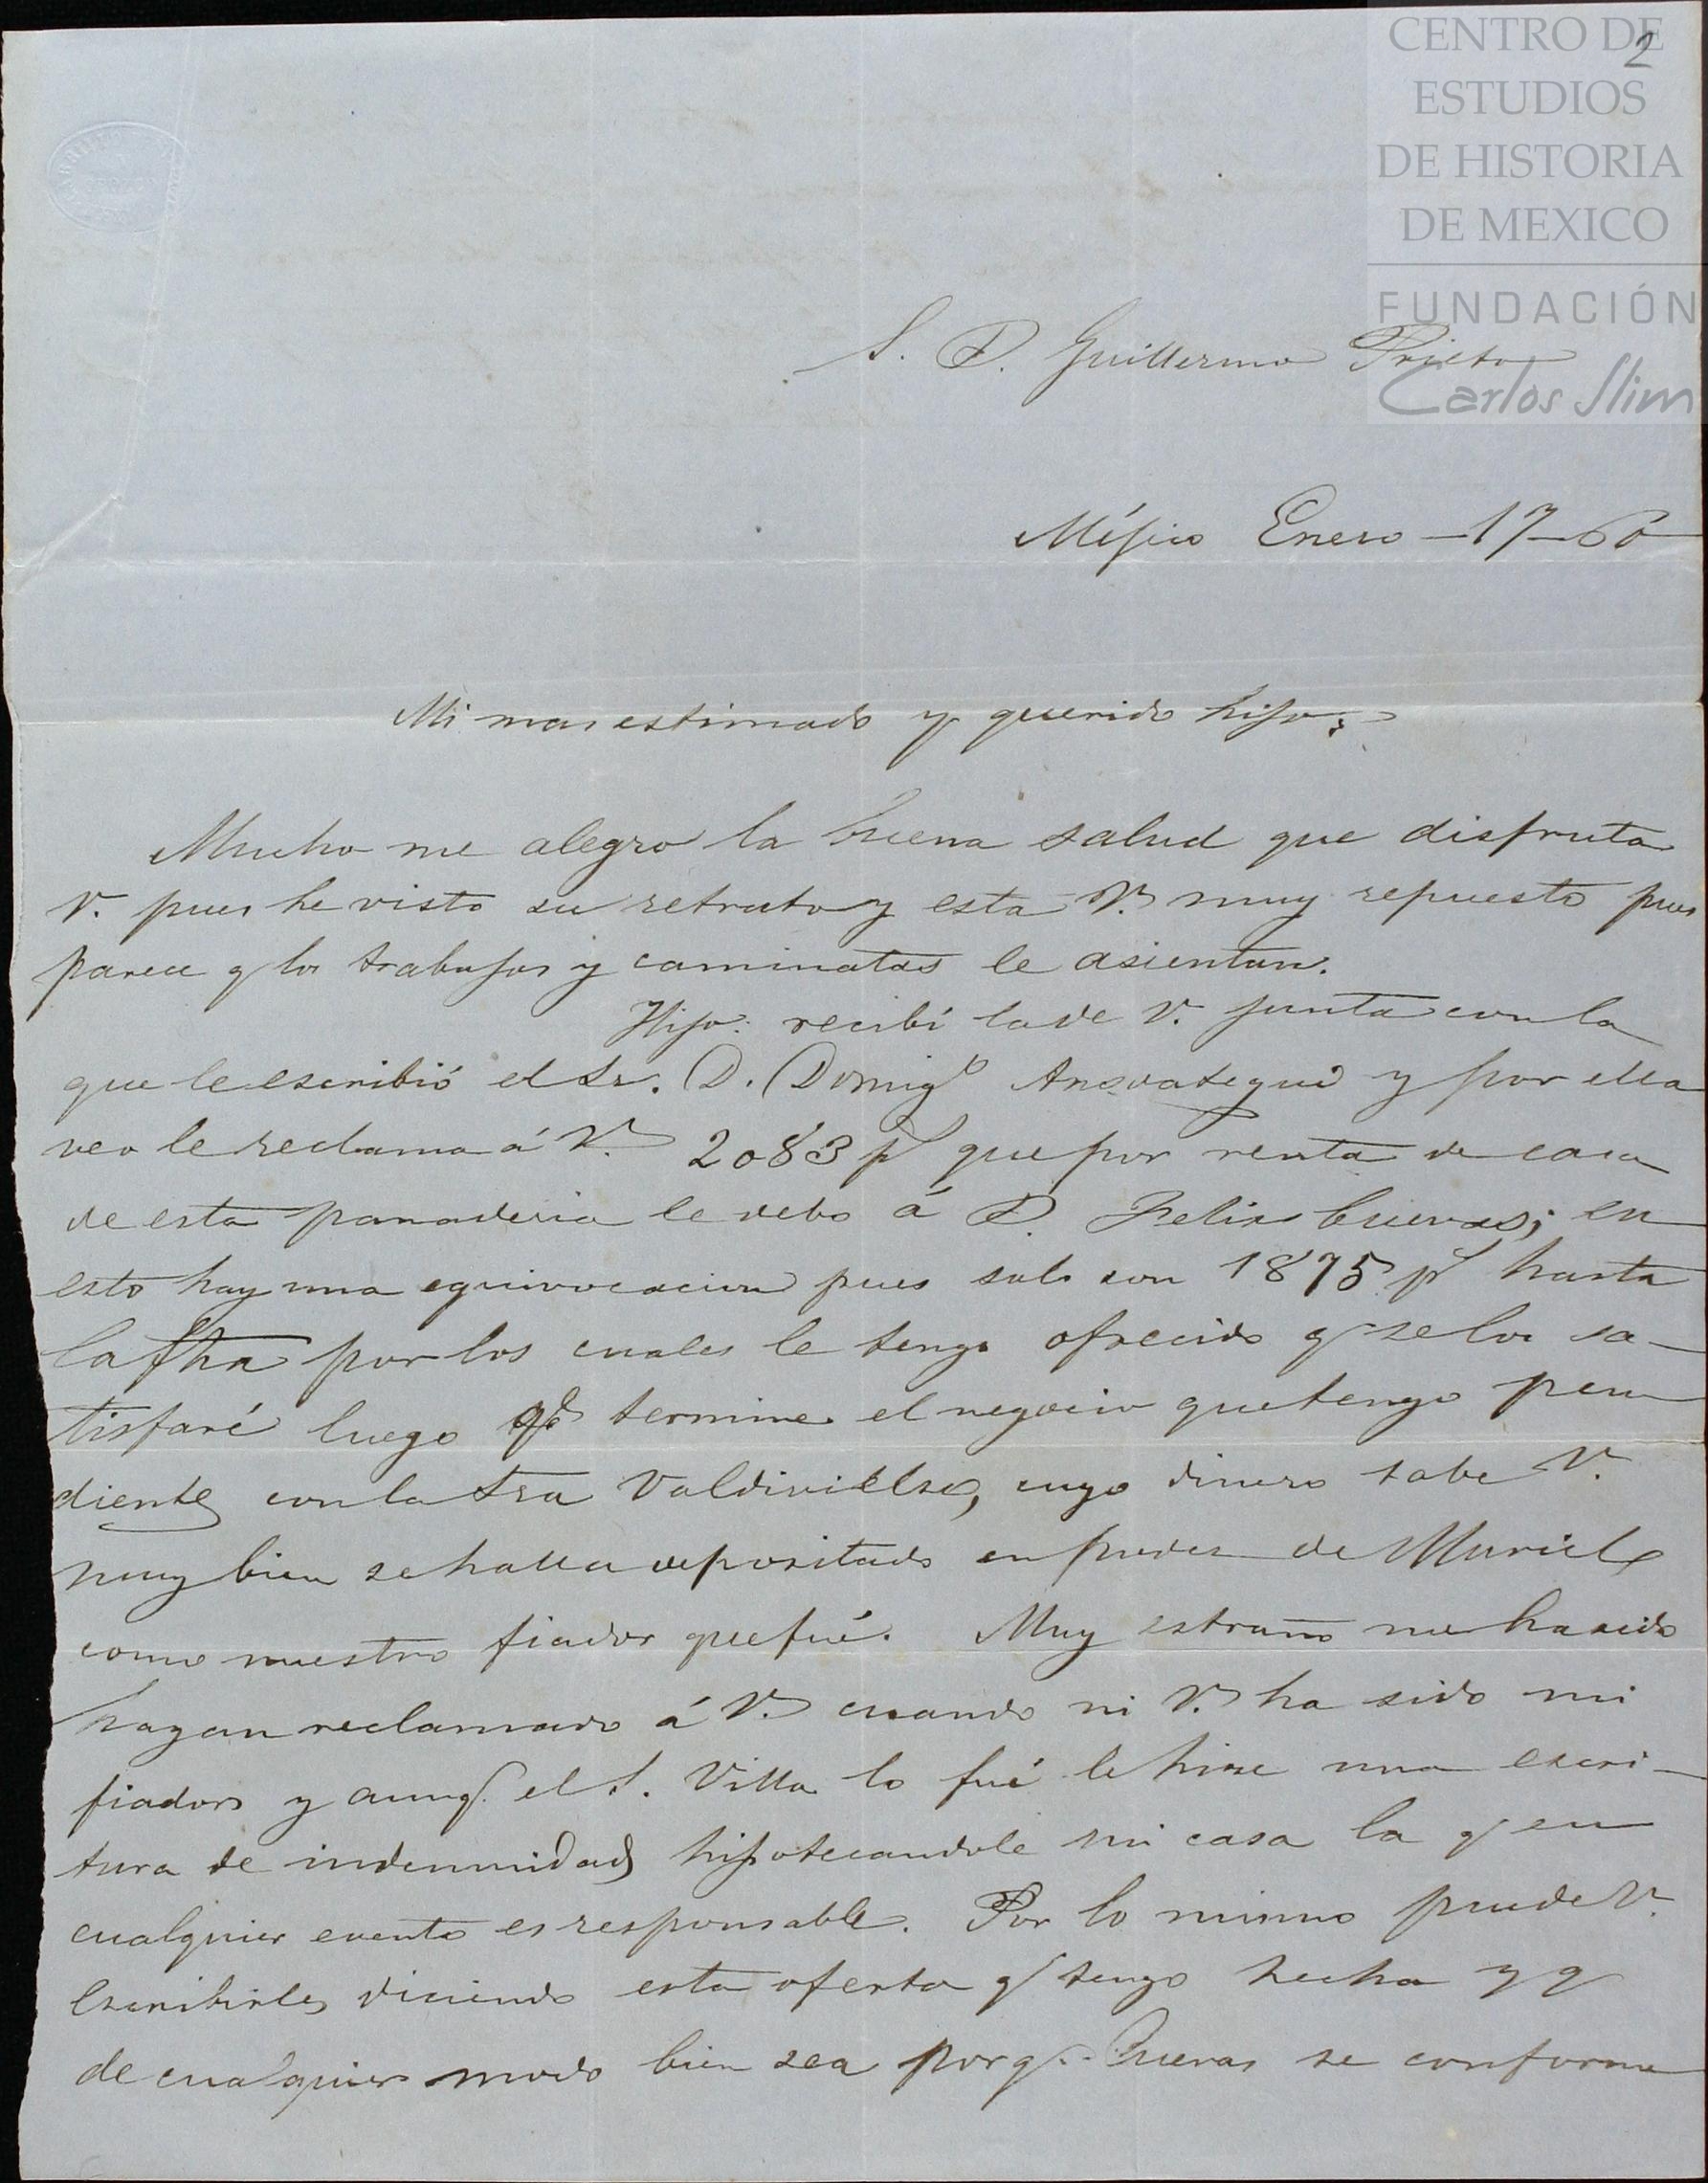 CENTRO DE
ESTUDIOS
DE HISTORIA
DE MEXICO
FUNDACIÓN
Carlos Slim
2
S. D. Guillermo Prieto
Méjico Enero - 17 - 60
Mi mas estimado y querido hijo:
Mucho me alegro la buena salud que disfruta
V. pues he visto su retrato y esta V. muy repuesto pues
parece q los trabajos y caminatas le asientan.
Hijo: recibí la de V. junta con la
que le escribió el Sr. D. Doming.o Ansoategui y por ella
veo le reclama á V. 2083 p.s que por renta de casa
de esta panaderia le debo á D. Felix Cuevas; en
esto hay una equivocacion pues solo son 1875 p.s hasta
la fha por los cuales le tengo ofrecido q se los sa-
tisfaré luego q.e termine el negocio que tengo pen
diente con la Sra Valdivielso, cuyo dinero sabe V.
muy bien se halla depositado en poder de Muriel
como nuestro fiador que fué. Muy estraño me ha sido
hayan reclamado á V. cuando ni V. ha sido mi
fiador y aunq. el S. Villa lo fué le hize una escri-
tura de indemnidad hipotecandole mi casa la q en
cualquier evento es responsable. Por lo mismo puede V.
escribirle diciendo esta oferta q tengo hecha y q
de cualquier modo bien sea porq. Cuevas se conforme